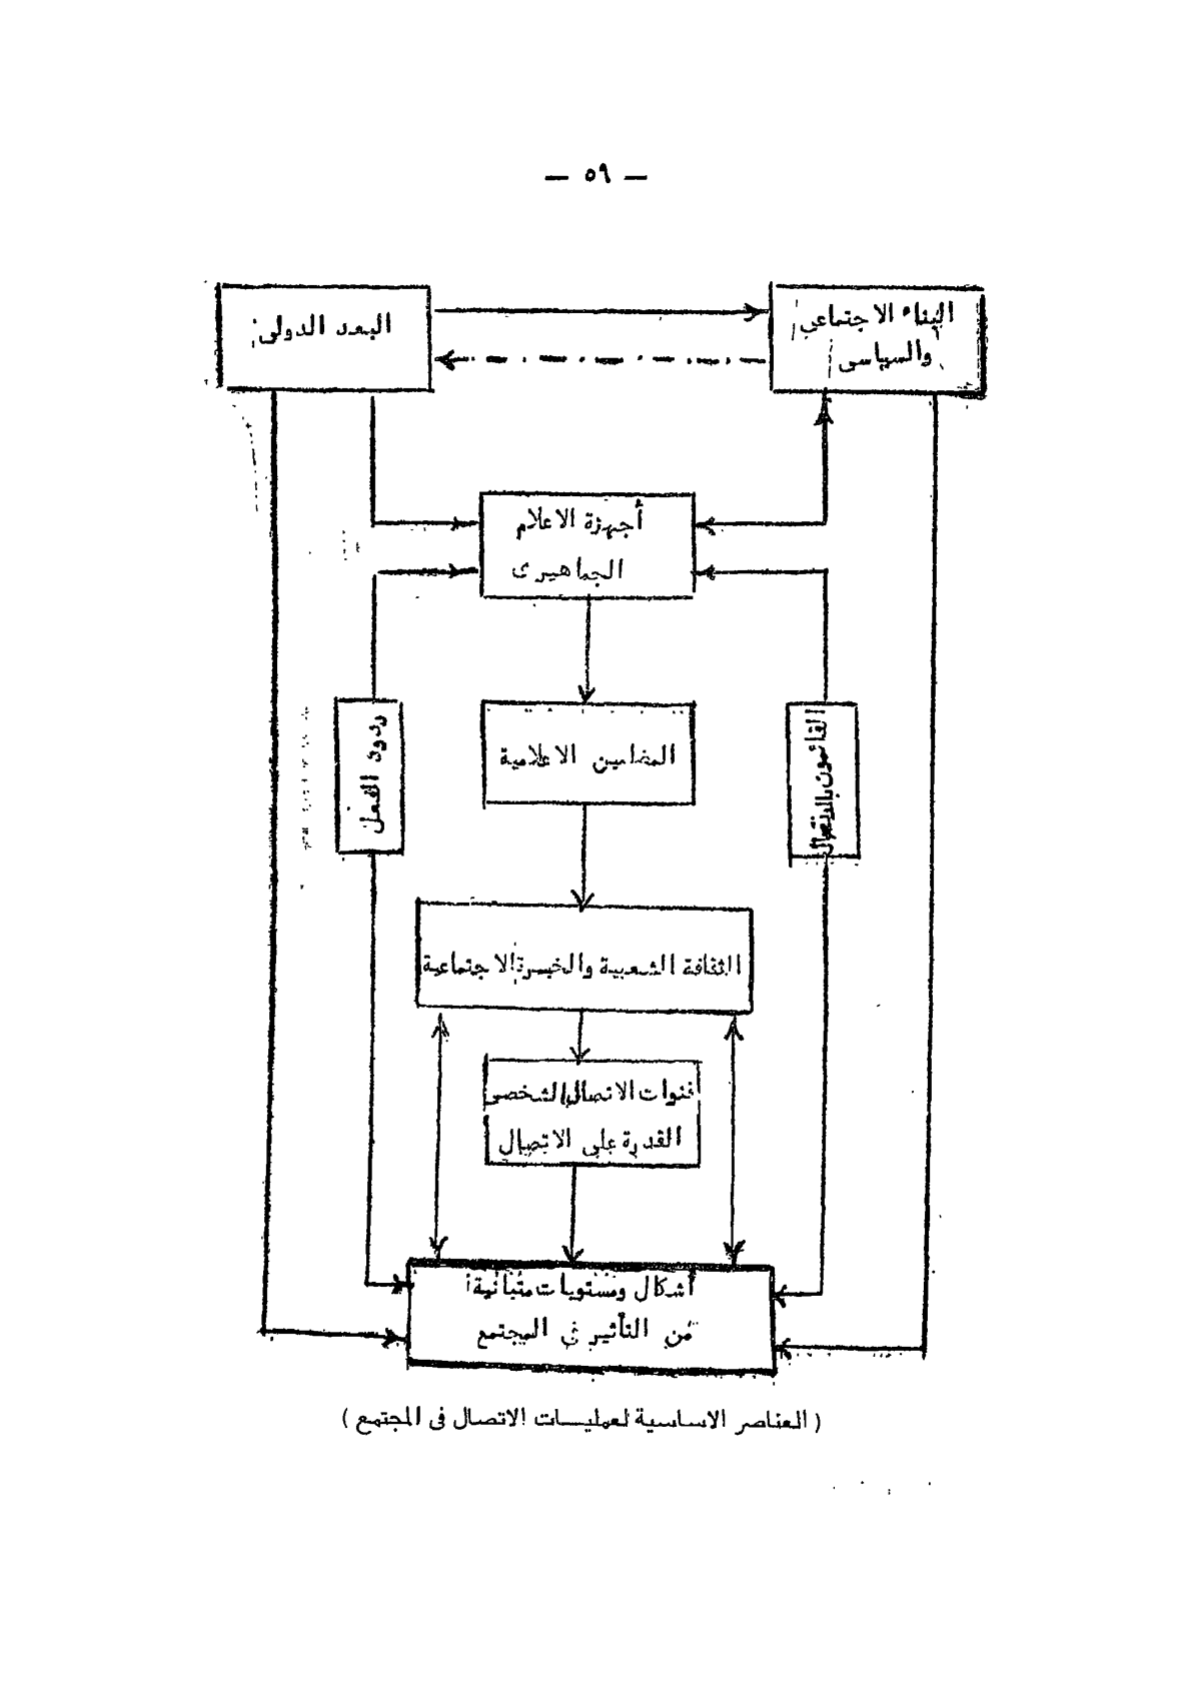 — ٥٩ —
البناء الاجتماعي
والسياسى
البعد الدولى
أجهزة الاعلام
الجماهيرى
ردود الفعل
المضامين الاعلامية
القائمون بالاتصال
الثقافة الشعبية والخبرة الاجتماعية
قنوات الاتصال الشخصى
القدرة على الاتصال
أشكال ومستويات متباينة
من التأثير فى المجتمع
( العناصر الاساسية لعمليات الاتصال فى المجتمع )